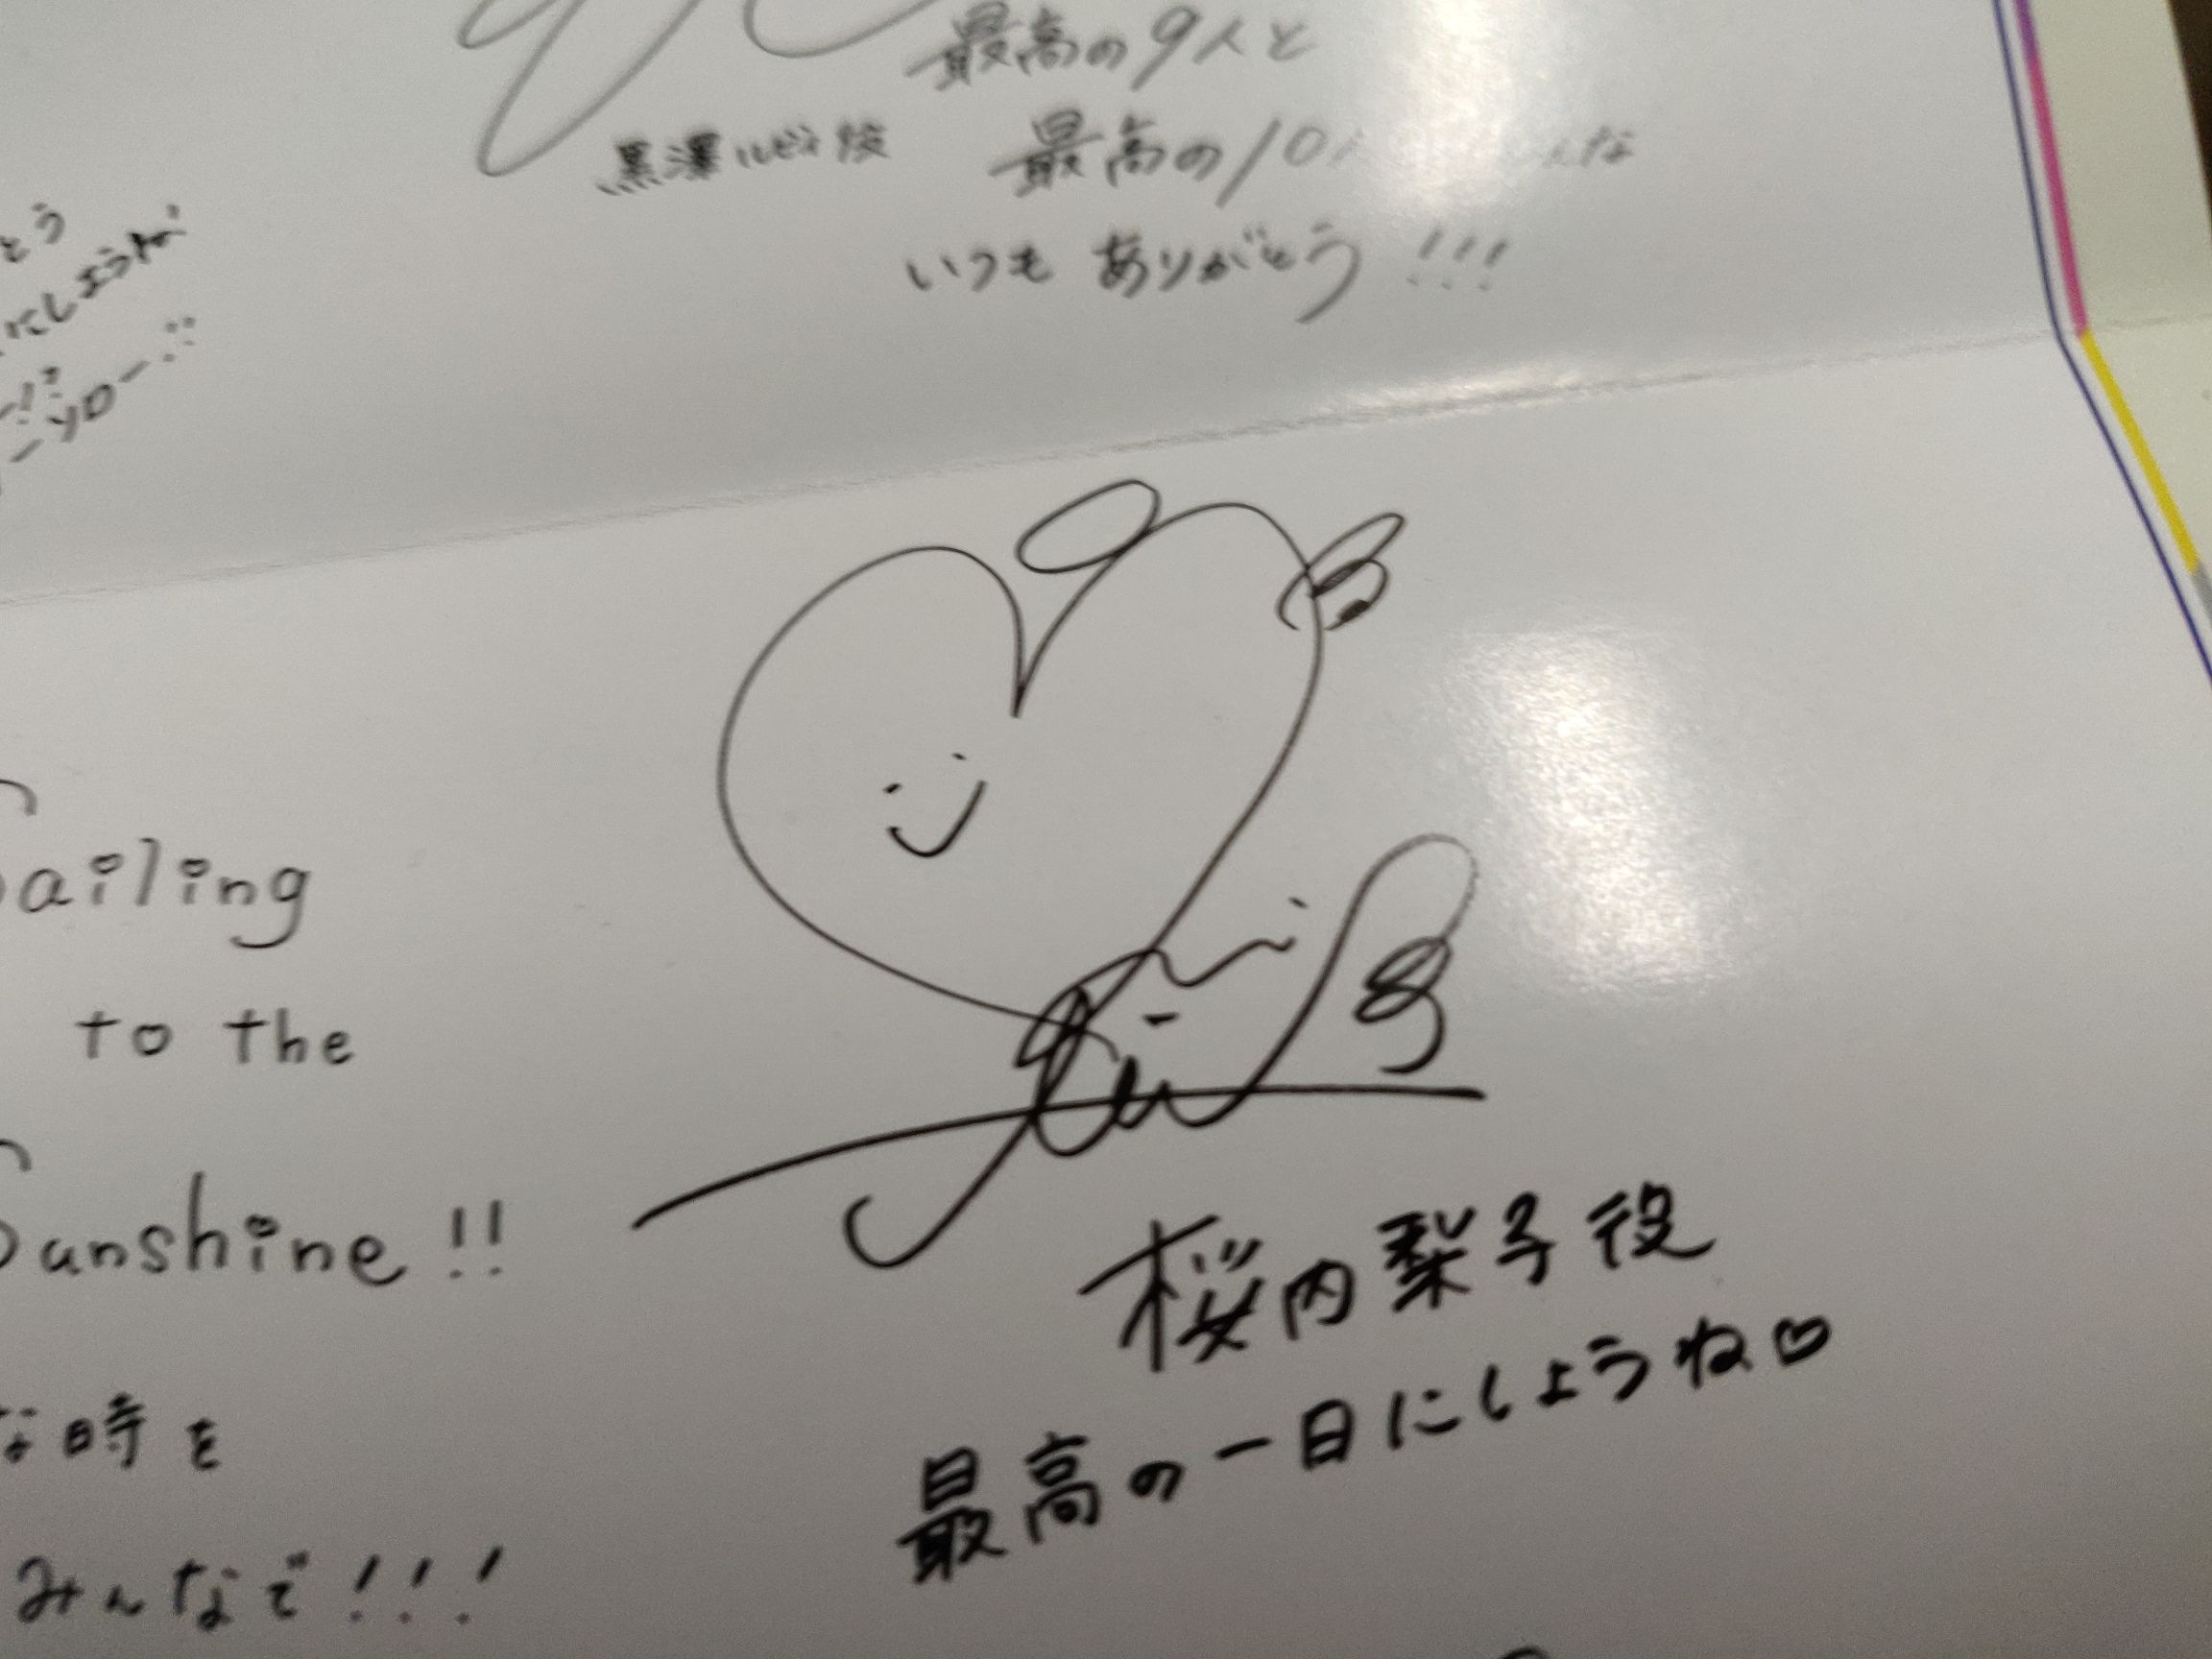 最高の9人と
最高の10人
な
いつも ありがとう!!!
黒澤ルビィ役
とう
にしようね
ーソロー!!
to the
Sunshine!!
な時を
みんなで!!!
桜内梨子役
最高の一日にしようね♡